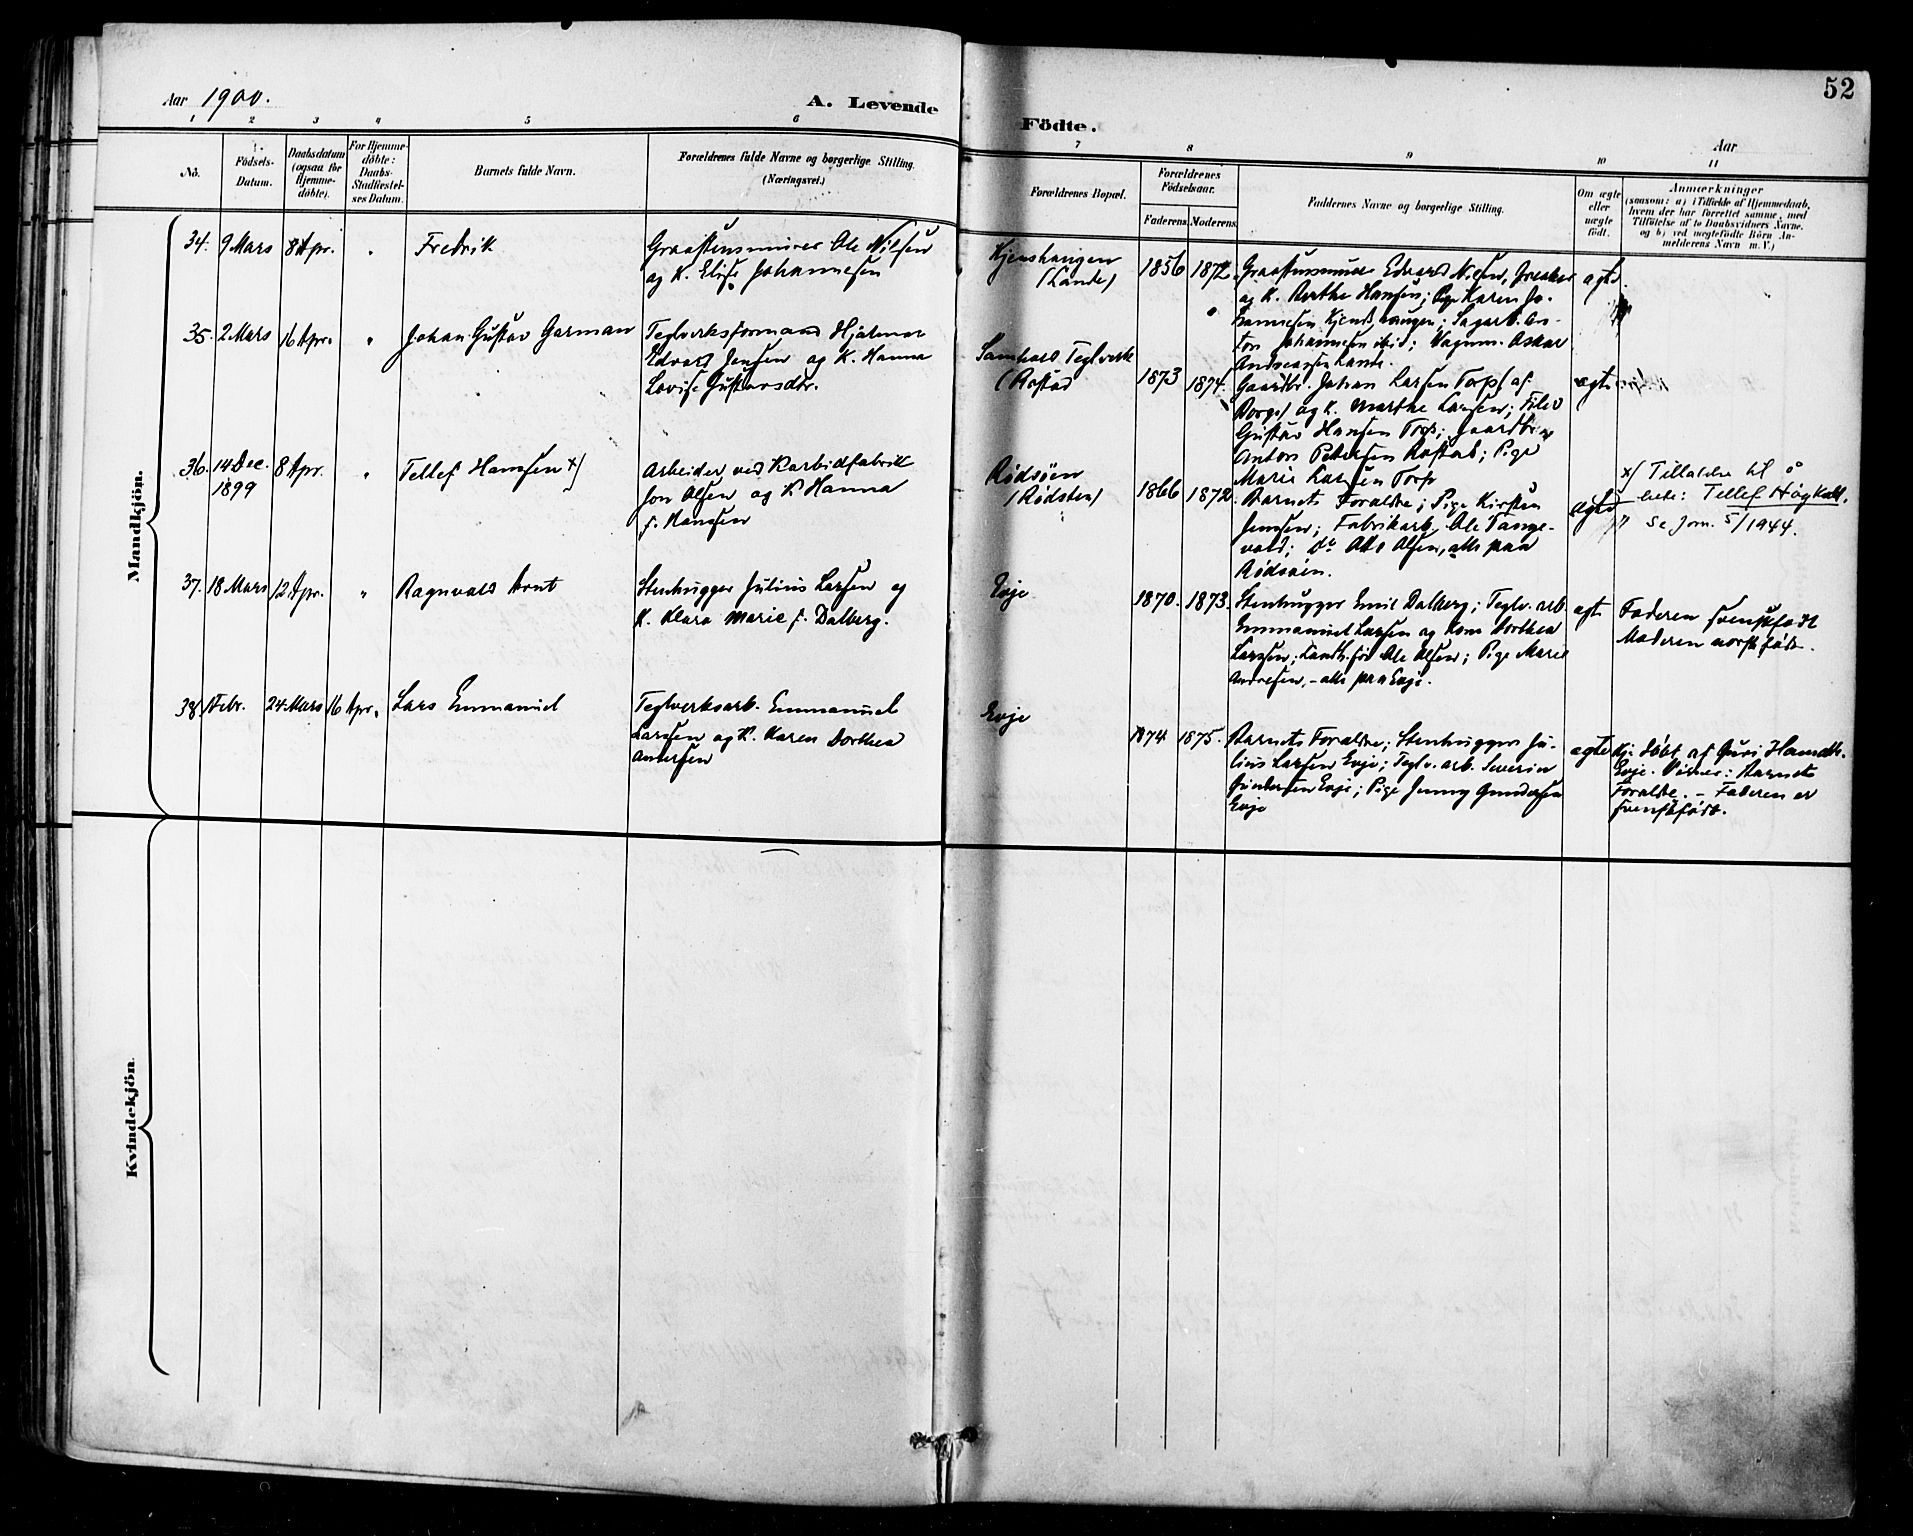 52
Aar 1900.
A. Levende
Födte.
Aar
1 2 3 4 5 6
7 8 9 10 11
No.
Födsels-
Datum.
Daabsdatum
(ogsaa for
Hjemme-
döbte).
For Hjemme-
döbte:
Daabs-
Stadfæstel-
ses Datum.
Barnets fulde Navn.
Forældrenes fulde Navne og borgerlige Stilling.
(Næringsvei.)
Forældrenes Bopæl.
Forældrenes
Födselsaar.
Faderens.
Moderens.
Faddernes Navne og borgerlige Stilling.
Om ægte
eller
uægte
födt.
Anmærkninger
(saasom: a) i Tilfælde af Hjemmedaab,
hvem der har forrettet samme, med
Tilföielse af to Daabsvidners Navne,
og b) ved uægtefödte Börn An-
melderens Navn m. V.)
Mandkjön.
34. 9 Mars 8 Apr. " Fredrik
Graastensmurer Ole Nilsen
og K. Elise Johannesen
Kjenshaugen
(Lande)
1856 1872
Graastensmurer Edvard Nilsen, Greaker
og K. Berthe Hansen; Pige Karen Jo-
hannesen Kjenshaugen; Sagarb. An-
ton Johannesen ibid; Vognm. Oskar
Andreassen Lande.
ægte
35. 2 Mars 16 Apr. " Johan Gustav Garman
Teglverksformand Hjalmar
Edvard Jensen og K. Hanna
Lovise Gustavsdtr.
Teglverk
(Rostad
1873 1874.
Gaardbr. Johan Larsen Torp (af
Borge) og K. Marthe Larsen;
Gustav Hansen Torp; Gaardbr.
Anton Petersen Rostad; Pige
Marie Larsen Torp
ægte
36. 14 Dec. 8 Apr. " Tellef Hansen x)
1899
Arbeider ved Karbidfabrik
Jon Olsen og K. Hanna
f. Hansen
Rødsöen
(Rødsten)
1866 1872.
Barnets Forældre; Pige Kirsten
Jensen; Fabrikarb. Ole Tange-
vald; do Otto Olsen, alle paa
Rødsöen.
ægte
x) Tillatelse til å
hete: Tellef Høgkall.
Se Jorn. 5/1944.
37. 18 Mars 12 Apr. " Ragnvald Arnt
Stenhugger Julius Larsen og
K. Klara Marie f. Dalberg.
Evje
1870. 1873.
Stenhugger Emil Dalberg; Teglv. arb.
Emmanuel Larsen og Kone Dorthea
Larsen; Ole Olsen; Pige Marie
Andresen, – alle paa Evje.
ægte
Faderen svenskfödt
Moderen norskfödt.
38. Febr. 24 Mars 16 Apr. Lars Emmanuel
Teglverksarb. Emmanuel
Larsen og K. Karen Dorthea
Andersen
Evje
1874 1875.
Barnets Forældre; Stenhugger Ju-
lius Larsen Evje; Teglv. arb. Severin
Gundersen Evje; Pige Jenny Gundersen
Evje
ægte
Hj. döbt af Guri
Evje. Vidner: Barnets
Forældre. – Faderen er
svenskfödt.
Kvindekjön.